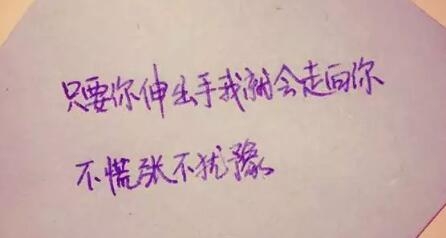 只要你伸出手我就会走向你
不慌张不犹豫